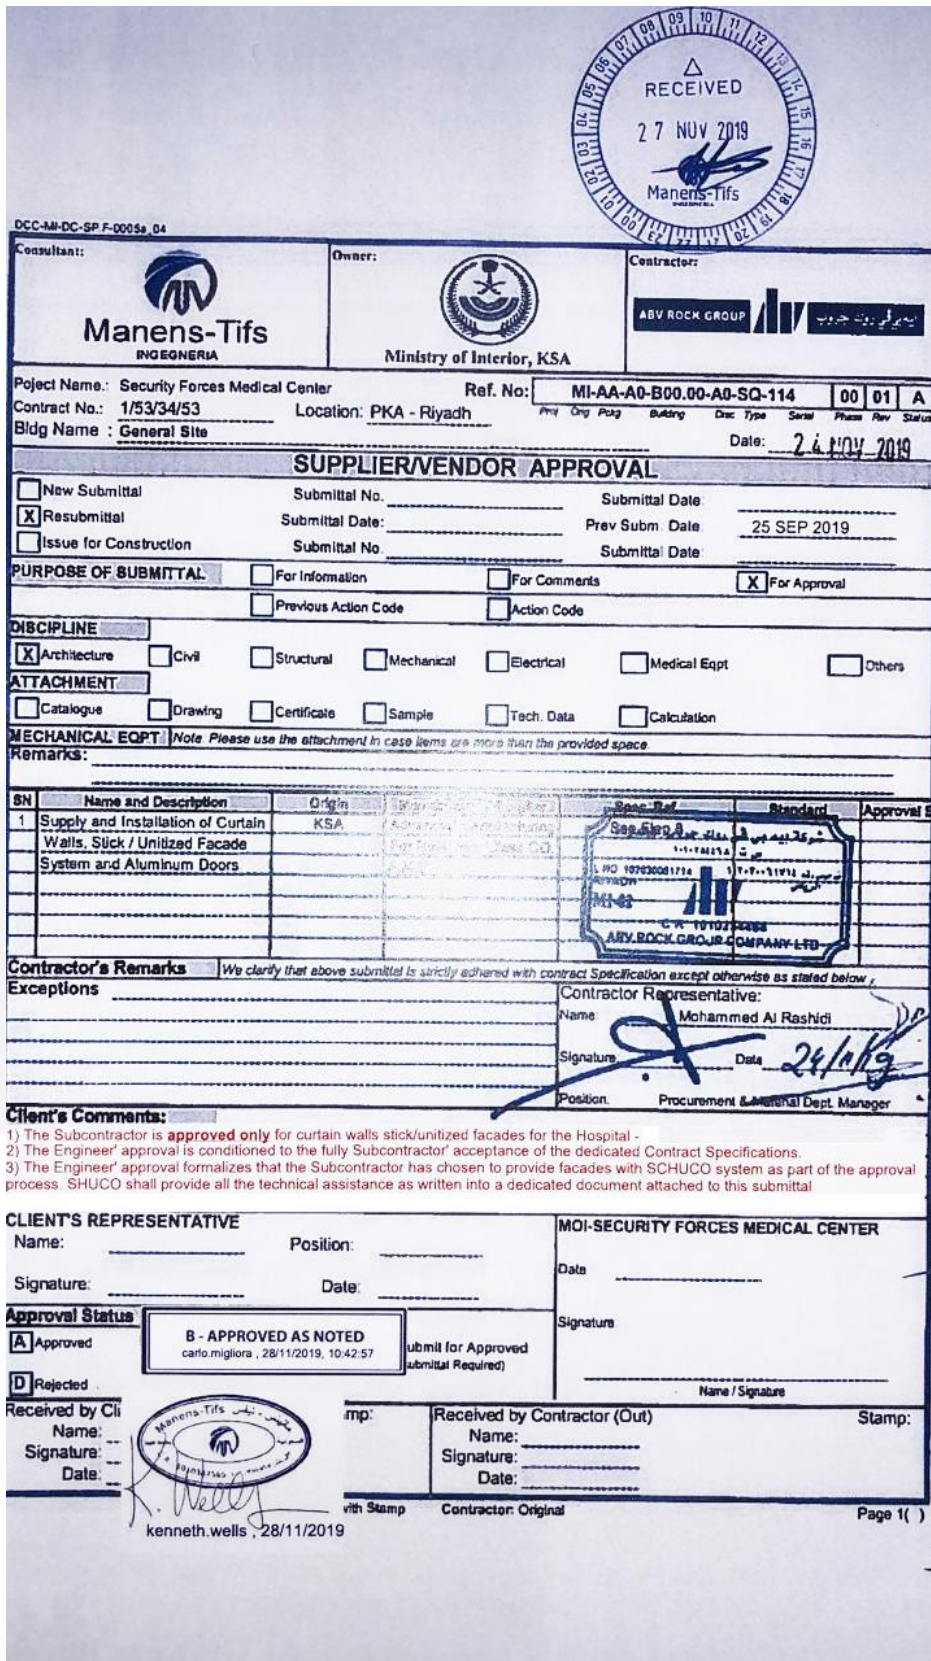 RECEIVED
27 NOV 2019
Manens-Tifs
INGEGNERIA
DCC-MI-DC-SP F-0005a_04
Consultant:
Manens-Tifs
INGEGNERIA
Owner:
Ministry of Interior, KSA
Contractor:
ABV ROCK GROUP ايه بي في روك جروب
Poject Name.: Security Forces Medical Center
Ref. No: MI-AA-A0-B00.00-A0-SQ-114 00 01 A
Contract No.: 1/53/34/53 Location: PKA - Riyadh
Proj Orig Pckg Building Disc Type Serial Phase Rev Status
Bldg Name : General Site
Date: 24 NOV 2019
SUPPLIER/VENDOR APPROVAL
New Submittal Submittal No. Submittal Date:
X Resubmittal Submittal Date: Prev Subm. Date 25 SEP 2019
Issue for Construction Submittal No. Submittal Date:
PURPOSE OF SUBMITTAL For Information For Comments X For Approval
Previous Action Code Action Code
DISCIPLINE
X Architecture Civil Structural Mechanical Electrical Medical Eqpt Others
ATTACHMENT
Catalogue Drawing Certificate Sample Tech. Data Calculation
MECHANICAL EQPT Note. Please use the attachment in case items are more than the provided space
Remarks:
SN Name and Description Origin Spec. Ref Standard Approval S
1 Supply and Installation of Curtain KSA
Walls, Stick / Unitized Facade
System and Aluminum Doors
ABV.ROCK GROUP COMPANY LTD
Contractor's Remarks We clarify that above submittal is strictly adhered with contract Specification except otherwise as stated below
Exceptions
Contractor Representative:
Name: Mohammed Al Rashidi
Signature Date 24/11/19
Position. Procurement & Material Dept. Manager
Client's Comments:
1) The Subcontractor is approved only for curtain walls stick/unitized facades for the Hospital -
2) The Engineer' approval is conditioned to the fully Subcontractor' acceptance of the dedicated Contract Specifications.
3) The Engineer' approval formalizes that the Subcontractor has chosen to provide facades with SCHUCO system as part of the approval
process. SHUCO shall provide all the technical assistance as written into a dedicated document attached to this submittal
CLIENT'S REPRESENTATIVE
Name: Position:
Signature: Date:
MOI-SECURITY FORCES MEDICAL CENTER
Date
Signature
Name / Signature
Approval Status
A Approved
B - APPROVED AS NOTED
carlo.migliora , 28/11/2019, 10:42:57
ubmit for Approved
ubmittal Required)
D Rejected
Received by Cli mp:
Name:
Signature:
Date:
Manens-Tifs
K. Wells
kenneth.wells , 28/11/2019
Received by Contractor (Out) Stamp:
Name:
Signature:
Date:
with Stamp Contractor: Original Page 1( )